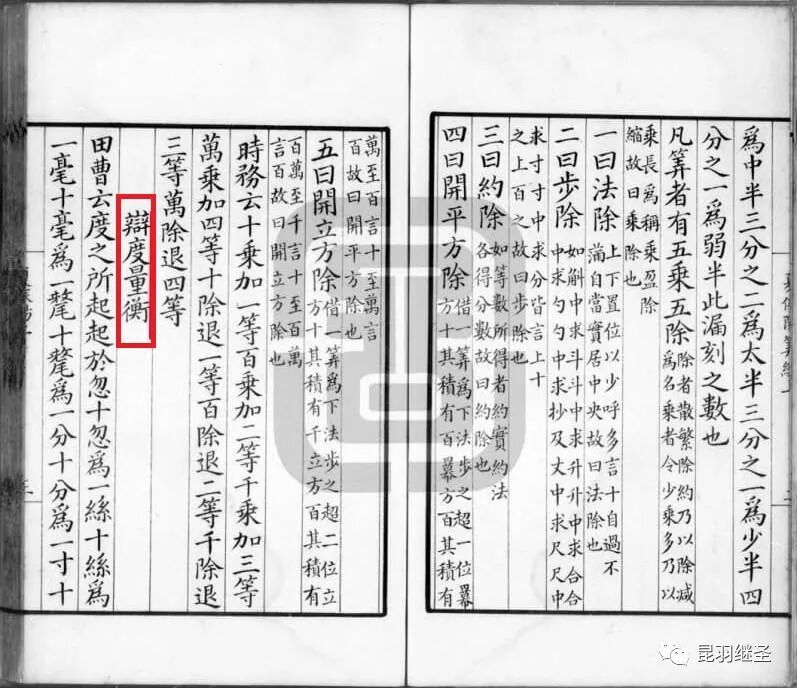 爲中半三分之二爲太半三分之一爲少半四
分之一爲弱半此漏刻之數也
凡筭者有五乘五除
除者散繁除約乃以除減
爲名乘者令少乘多乃以
乘長爲稱乘盈除
縮故曰乘除也
一曰法除
上下置位以少呼多言十自過不
滿自當實居中央故曰法除也
二曰步除
如斛中求斗斗中求升升中求合合
中求勺勺中求抄及丈中求尺尺中
求寸寸中求分皆言上十
之上百之故曰步除也
三曰約除
如等數所得者約實約法
各得分數故曰約除也
四曰開平方除
借一筭爲下法步之超一位冪
方十其積有百冪方百其積有
萬至百言十萬言
百故曰開平方除也
五曰開立方除
借一筭爲下法步之超二位立
方十其積有千立方百其積有
百萬至千言十至百萬
言百故曰開立方除也
時務云十乘加一等百乘加二等千乘加三等
萬乘加四等十除退一等百除退二等千除退
三等萬除退四等
辯度量衡
田曹云度之所起起於忽十忽爲一絲十絲爲
一毫十毫爲一氂十氂爲一分十分爲一寸十
昆羽继圣